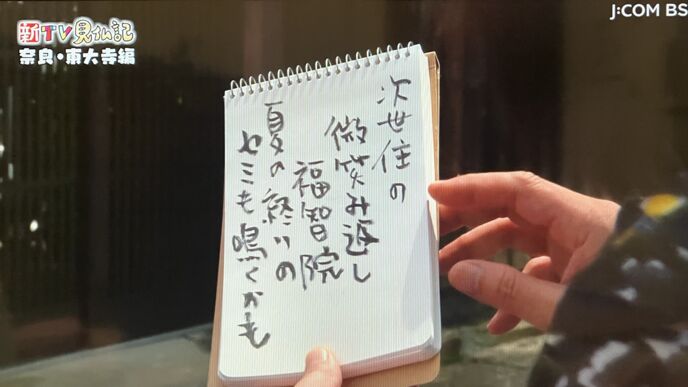 新TV見仏記
奈良・東大寺編
J:COM BS
次世住の
微笑み返し
福智院
夏の終りの
セミも鳴くかも